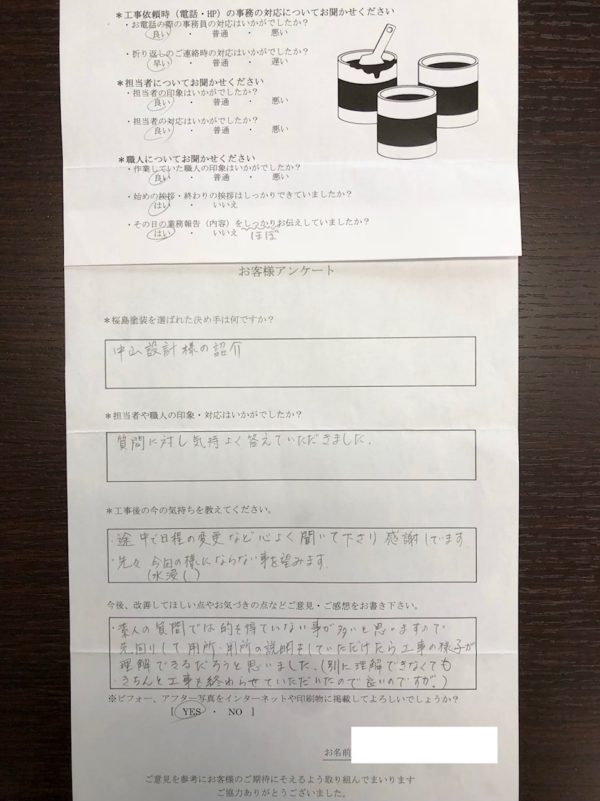 ＊工事依頼時（電話・HP）の事務の対応についてお聞かせください
・お電話の際の事務員の対応はいかがでしたか？
良い ・ 普通 ・ 悪い
・折り返しのご連絡時の対応はいかがでしたか？
早い ・ 普通 ・ 遅い
＊担当者についてお聞かせください
・担当者の印象はいかがでしたか？
良い ・ 普通 ・ 悪い
・担当者の対応はいかがでしたか？
良い ・ 普通 ・ 悪い
＊職人についてお聞かせください
・作業していた職人の印象はいかがでしたか？
良い ・ 普通 ・ 悪い
・始めの挨拶・終わりの挨拶はしっかりできていましたか？
はい ・ いいえ
・その日の業務報告（内容）をしっかりお伝えしていましたか？
はい ・ いいえ ほぼ
お客様アンケート
＊桜島塗装を選ばれた決め手は何ですか？
中山設計様の紹介
＊担当者や職人の印象・対応はいかがでしたか？
質問に対し気持よく答えていただきました。
＊工事後の今の気持ちを教えてください。
・途中で日程の変更など心よく聞いて下さり感謝しています
・先々 今回の様にならない事を望みます
(水浸し)
今後、改善してほしい点やお気づきの点などご意見・ご感想をお書き下さい。
・素人の質問では的を得ていない事が多いと思いますので
先回りして用所・用所の説明をしていただけたら工事の様子が
理解できるだろうと思いました。(別に理解できなくても
・きちんと工事を終わらせていただいたので良いのですが。)
※ビフォー、アフター写真をインターネットや印刷物に掲載してよろしいでしょうか？
［ YES ・ NO ］
お名前
ご意見を参考にお客様のご期待にそえるよう取り組んでまいります
ご協力ありがとうございました。